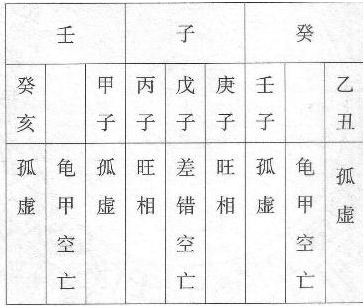 壬 子 癸
癸亥 甲子 丙子 戊子 庚子 壬子 乙丑
孤虚 龟甲空亡 孤虚 旺相 差错空亡 旺相 孤虚 龟甲空亡 孤虚